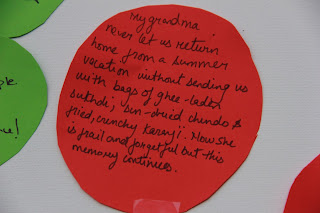 my grandma
never let us return
home from a summer
vacation without sending us
with bags of ghee-laden
sukhdi; sun-dried chundo &
fried, crunchy karanji. Now she
is frail and forgetful but this
memory continues.
ple
e!